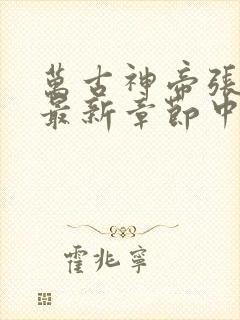 萬古神帝張
最新章節中
霍兆寧